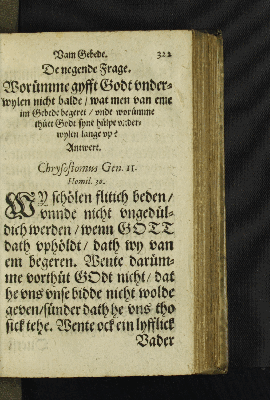 Vam Gebede. 322
De negende Frage.
Worümme gyfft Godt vnder-
wylen nicht balde / wat men van eme
im Gebede begeret / vnde worümme
thüet Godt syne hülpe vnder-
wylen lange vp?
Antwert.
Chrysostomus Gen. 11.
Homil. 30.
WY schölen flitich beden /
vnnde nicht vngedül-
dich werden / wenn GOTT
dath vphöldt / dath wy van
em begeren. Wente darüm-
me vorthüt GOdt nicht / dat
he vns vnse bidde nicht wolde
geven / sünder dath he vns tho
sick tehe. Wente ock ein lyfflick
Vader